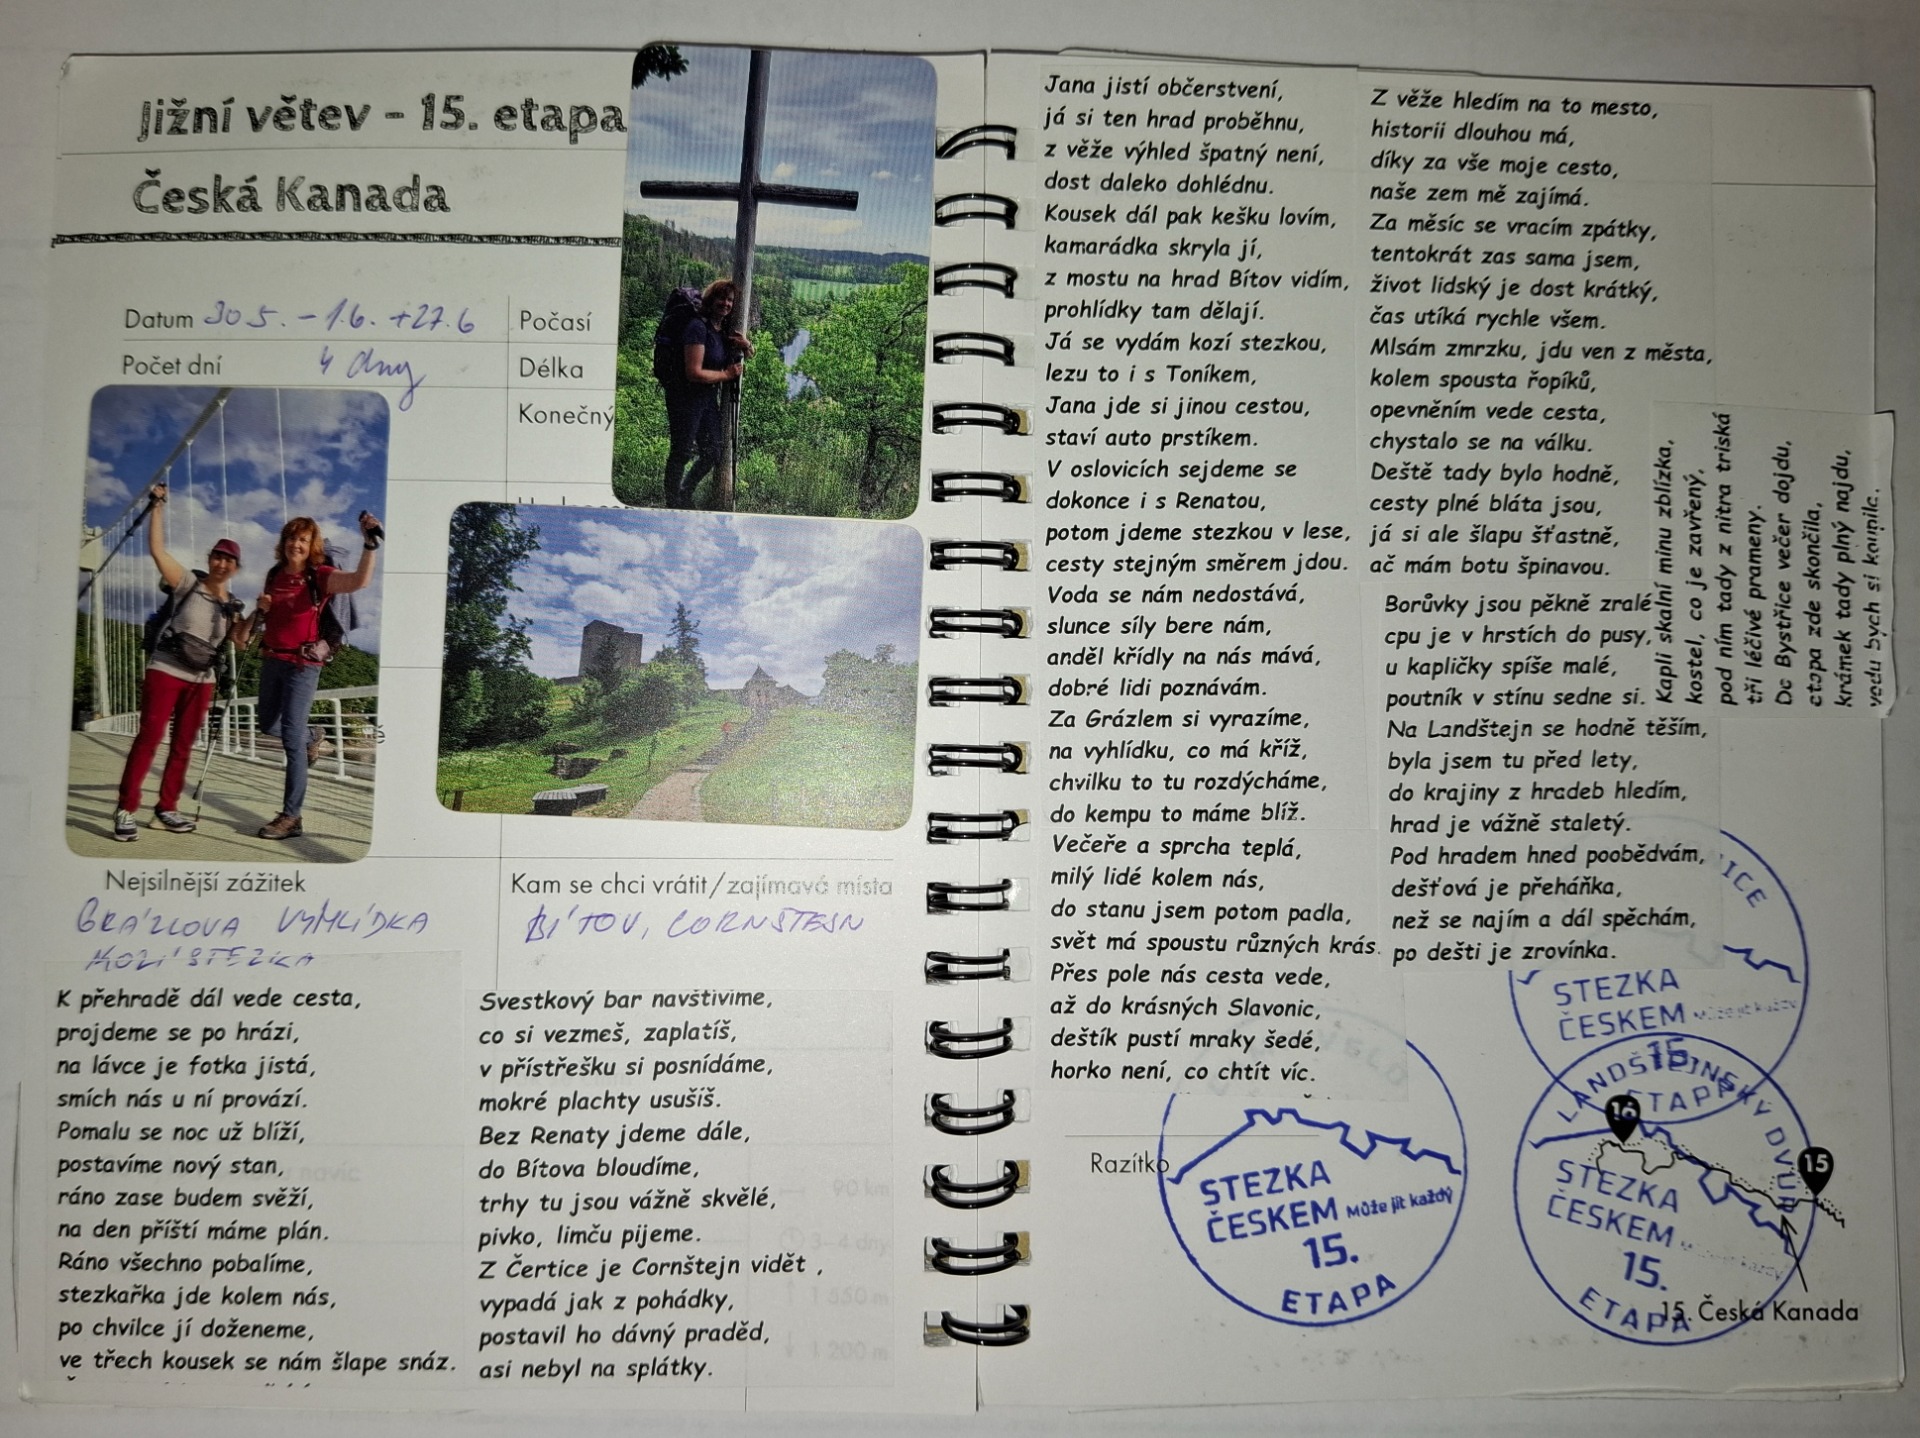 Jižní větev - 15. etapa
Česká Kanada
Datum 30.5. - 1.6. + 27.6
Počasí
Počet dní 4 dny
Délka
Konečný
Nejsilnější zážitek
GRÁZLOVA VYHLÍDKA
KOZÍ STEZKA
Kam se chci vrátit/zajímavá místa
BÍTOV, CORNŠTEJN
K přehradě dál vede cesta,
projdeme se po hrázi,
na lávce je fotka jistá,
smích nás u ní provází.
Pomalu se noc už blíží,
postavíme nový stan,
ráno zase budem svěží,
na den příští máme plán.
Ráno všechno pobalíme,
stezkařka jde kolem nás,
po chvilce jí doženeme,
ve třech kousek se nám šlape snáz.
Svestkový bar navštivime,
co si vezmeš, zaplatíš,
v přístřešku si posnídáme,
mokré plachty usušíš.
Bez Renaty jdeme dále,
do Bítova bloudíme,
trhy tu jsou vážně skvělé,
pivko, limču pijeme.
Z Čertice je Cornštejn vidět ,
vypadá jak z pohádky,
postavil ho dávný praděd,
asi nebyl na splátky.
90 km
3-4 dny
1 550 m
1 200 m
Jana jistí občerstvení,
já si ten hrad proběhnu,
z věže výhled špatný není,
dost daleko dohlédnu.
Kousek dál pak kešku lovím,
kamarádka skryla jí,
z mostu na hrad Bítov vidím,
prohlídky tam dělají.
Já se vydám kozí stezkou,
lezu to i s Toníkem,
Jana jde si jinou cestou,
staví auto prstíkem.
V oslovicích sejdeme se
dokonce i s Renatou,
potom jdeme stezkou v lese,
cesty stejným směrem jdou.
Voda se nám nedostává,
slunce síly bere nám,
anděl křídly na nás mává,
dobré lidi poznávám.
Za Grázlem si vyrazíme,
na vyhlídku, co má kříž,
chvilku to tu rozdýcháme,
do kempu to máme blíž.
Večeře a sprcha teplá,
milý lidé kolem nás,
do stanu jsem potom padla,
svět má spoustu různých krás.
Přes pole nás cesta vede,
až do krásných Slavonic,
deštík pustí mraky šedé,
horko není, co chtít víc.
Z věže hledím na to mesto,
historii dlouhou má,
díky za vše moje cesto,
naše zem mě zajímá.
Za měsíc se vracím zpátky,
tentokrát zas sama jsem,
život lidský je dost krátký,
čas utíká rychle všem.
Mlsám zmrzku, jdu ven z města,
kolem spousta řopíků,
opevněním vede cesta,
chystalo se na válku.
Deště tady bylo hodně,
cesty plné bláta jsou,
já si ale šlapu šťastně,
ač mám botu špinavou.
Borůvky jsou pěkně zralé
cpu je v hrstích do pusy,
u kapličky spíše malé,
poutník v stínu sedne si.
Na Landštejn se hodně těším,
byla jsem tu před lety,
do krajiny z hradeb hledím,
hrad je vážně staletý.
Pod hradem hned poobědvám,
dešťová je přeháňka,
než se najím a dál spěchám,
po dešti je zrovínka.
Kapli skalní minu zblízka,
kostel, co je zavřený,
pod ním tady z nitra tříská
tři léčivé prameny.
Do Bystřice večer dojdu,
etapa zde skončila,
krámek tady plný najdu,
vodu bych si koupila.
Razítko
STEZKA
ČESKEM Může jít každý
15.
ETAPA
STEZKA
ČESKEM Může jít každý
15.
ETAPA
LANDŠTEJNSKÝ DVŮR
STEZKA
ČESKEM
15.
ETAPA
16
15
15. Česká Kanada